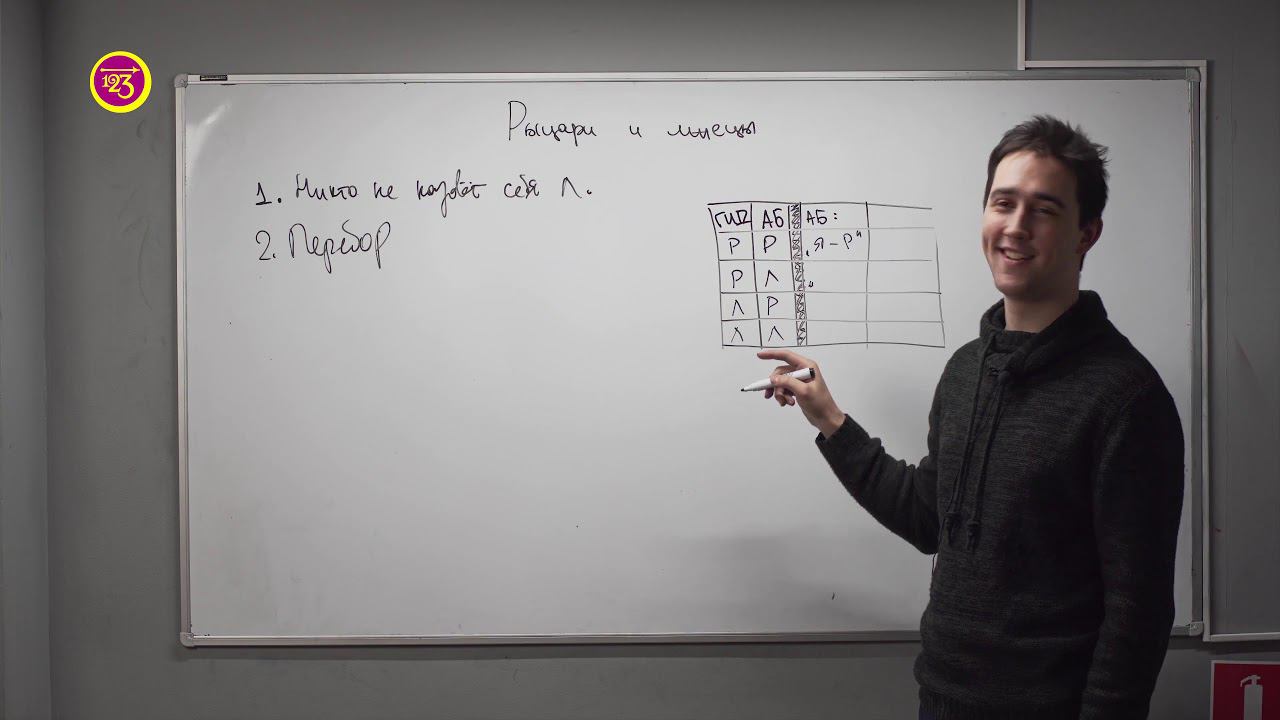 123
Рыцари и лжецы
1. Никто не назовёт себя Л.
2. Перебор
ГИД АБ АБ:
Р Р „Я – Р“
Р Л „
Л Р
Л Л